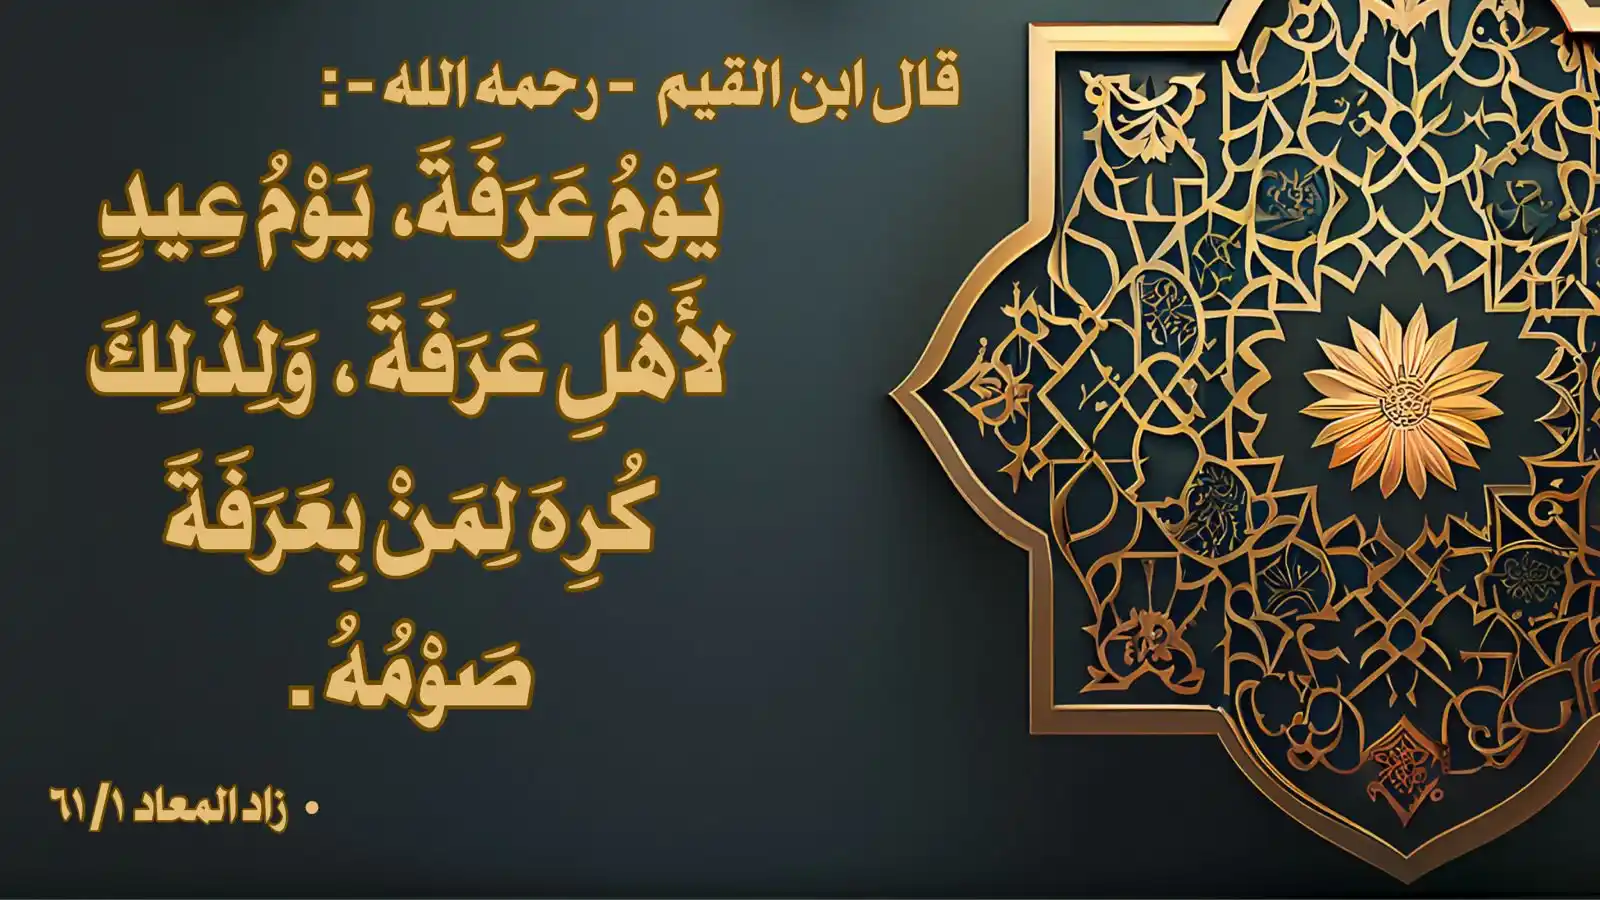 قال ابن القيم - رحمه الله -:
يَوْمُ عَرَفَةَ، يَوْمُ عِيدٍ
لأَهْلِ عَرَفَةَ ، وَلِذَلِكَ
كُرِهَ لِمَنْ بِعَرَفَةَ
صَوْمُهُ .
• زاد المعاد ٦١/١